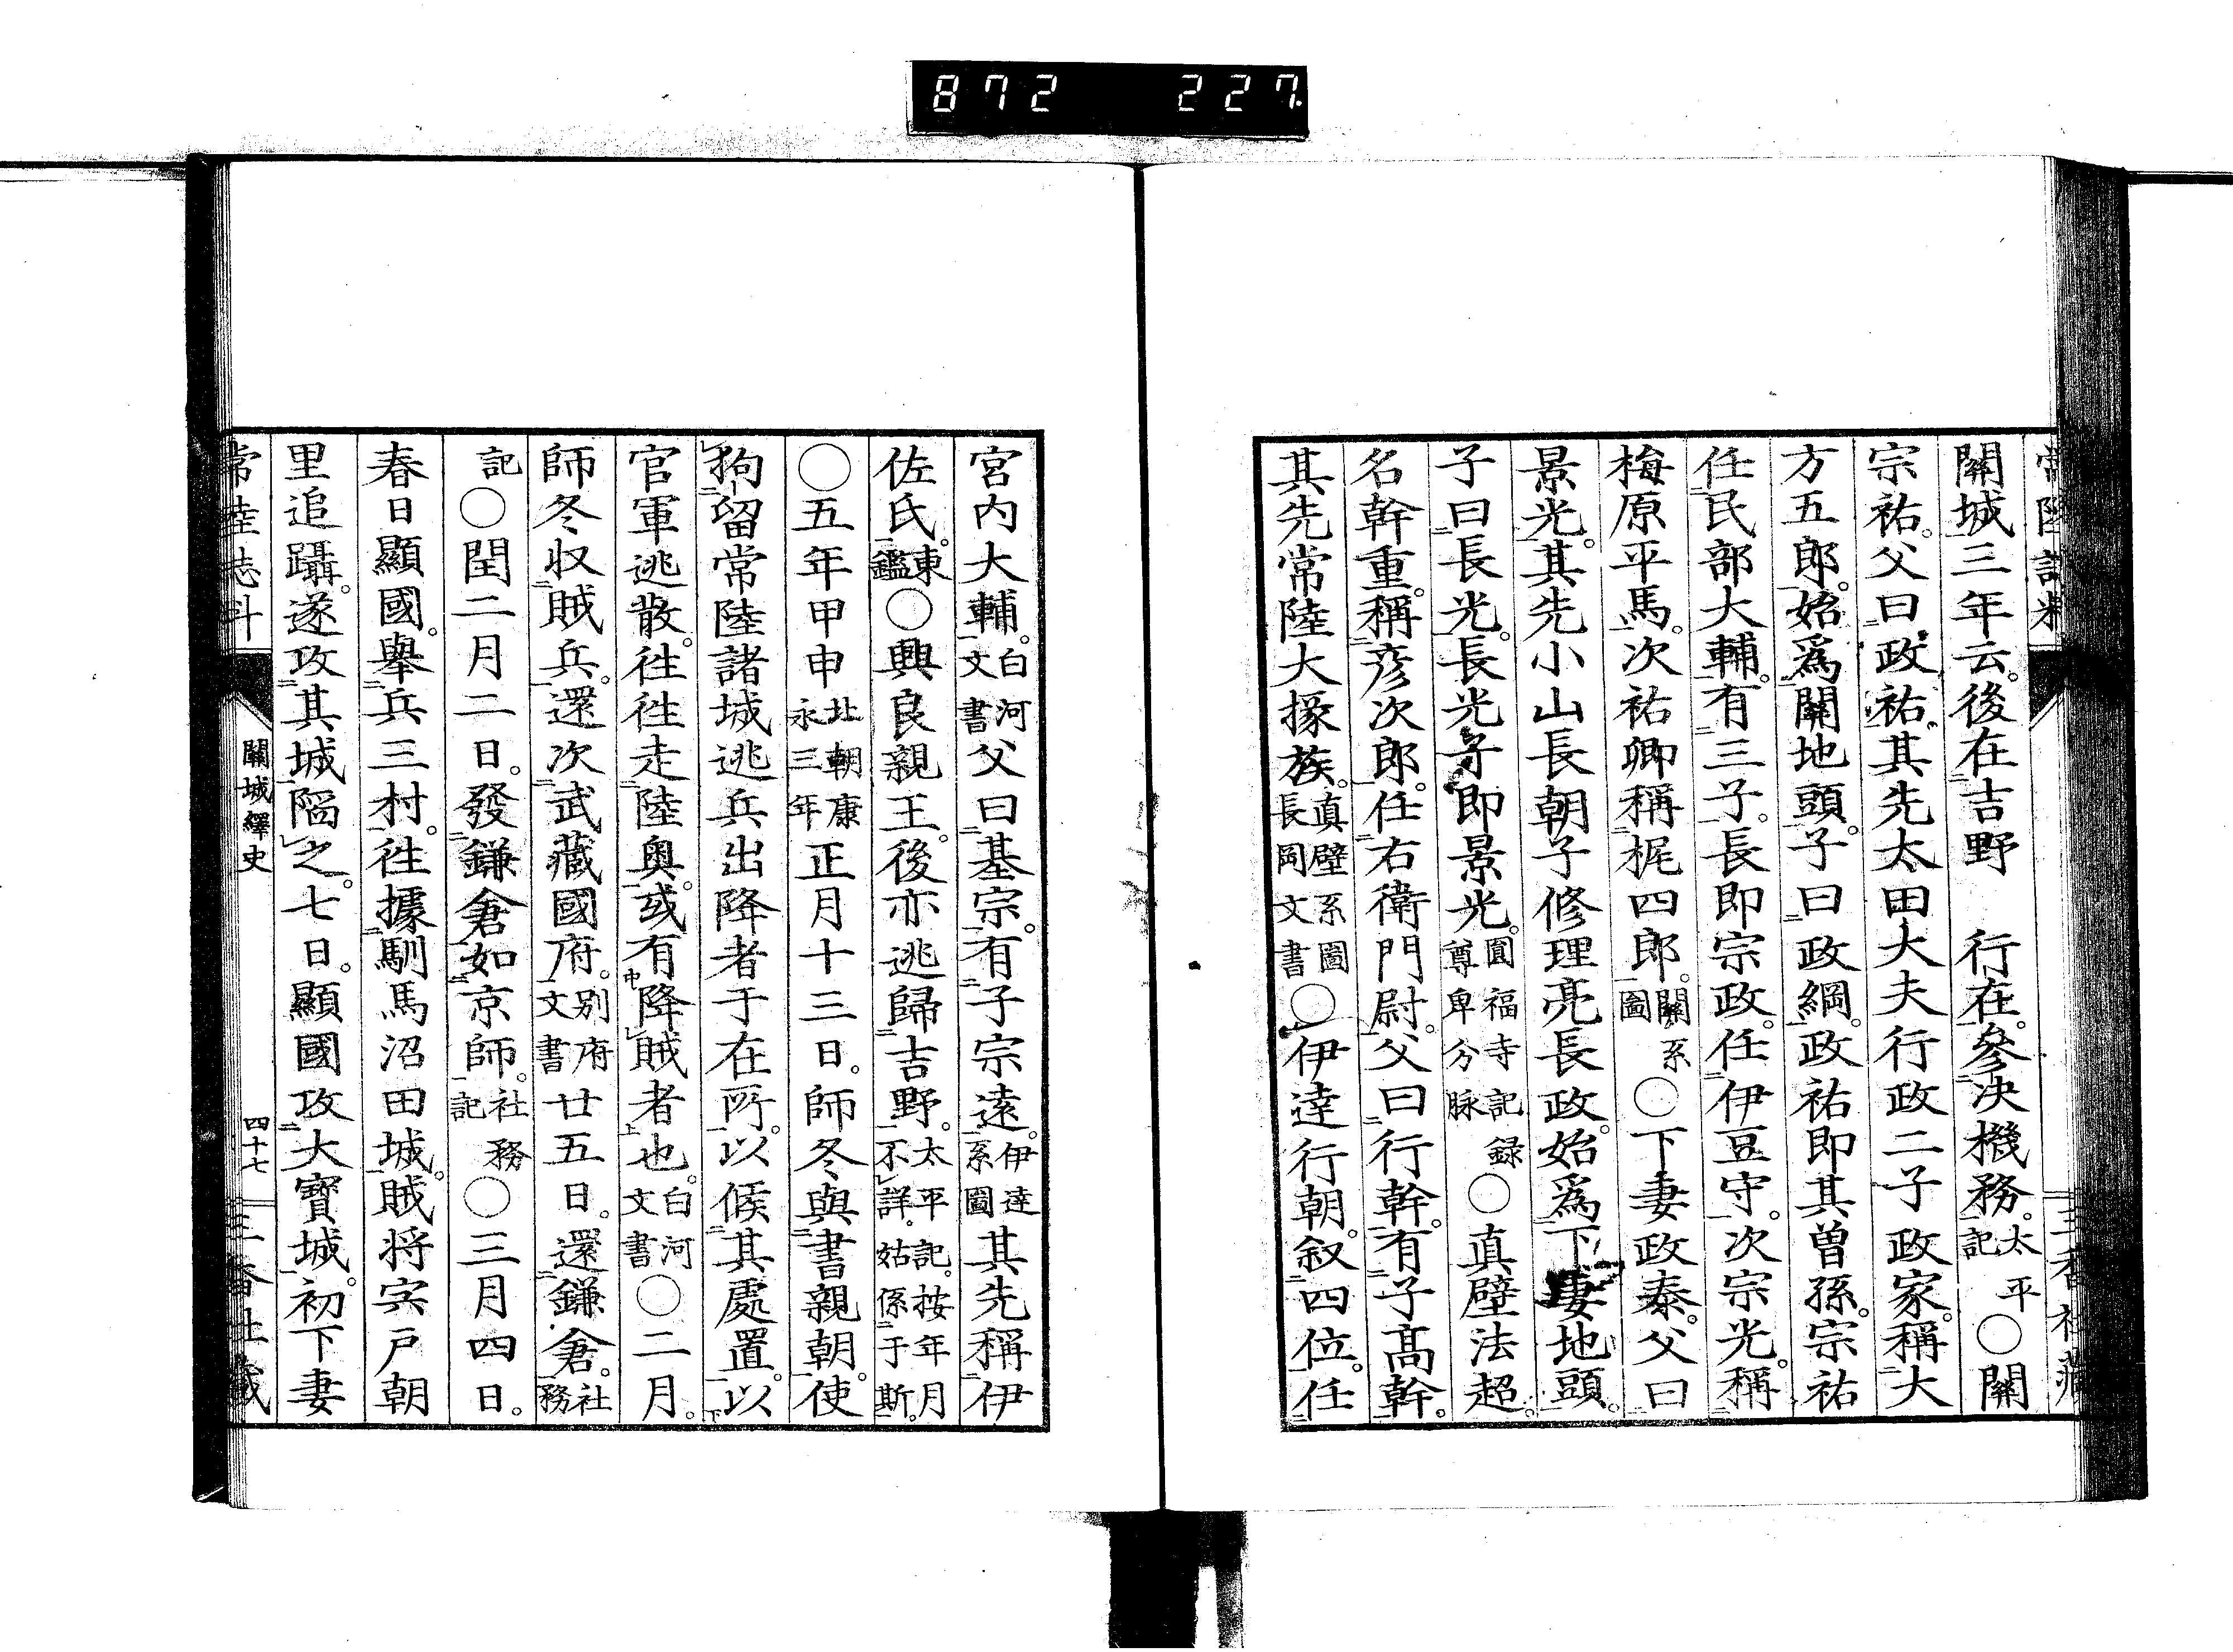 872 227
關城三年云。後在吉野 行在。參決機務。太平記 〇關
宗祐。父曰政祐。其先太田大夫行政二子政家。稱大
方五郎。始爲關地頭。子曰政綱。政祐即其曾孫。宗祐
任民部大輔。有三子。長即宗政。任伊豆守。次宗光。稱
梅原平馬。次祐卿稱梶四郎。關系圖 〇下妻政泰。父曰
景光。其先小山長朝子修理亮長政。始爲下妻地頭。
子曰長光。長光子即景光。圓福寺記録尊卑分脉 〇真壁法超。
名幹重。稱彦次郎。任右衛門尉。父曰行幹。有子高幹。
其先常陸大掾族。真壁系圖長岡文書 〇伊達行朝。叙四位。任
宮内大輔。白河文書 父曰基宗。有子宗遠。伊達系圖 其先稱伊
佐氏。東鑑 〇興良親王。後亦逃歸吉野。太平記。按年月不詳。姑係于斯。
〇五年甲申 北朝康永三年 正月十三日。師冬與書親朝。使
拘留常陸諸城逃兵出降者于在所。以候其處置。以
官軍逃散。往往走陸奥。或有降賊者也。白河文書 〇二月。
師冬收賊兵。還次武藏國府。別府文書 廿五日。還鎌倉。社務
記 〇閏二月二日。發鎌倉如京師。社務記 〇三月四日。
春日顯國。擧兵三村。往據馴馬沼田城。賊将宍戸朝
里追躡。遂攻其城陷之。七日。顯國攻大寳城。初下妻
關城繹史
四十七